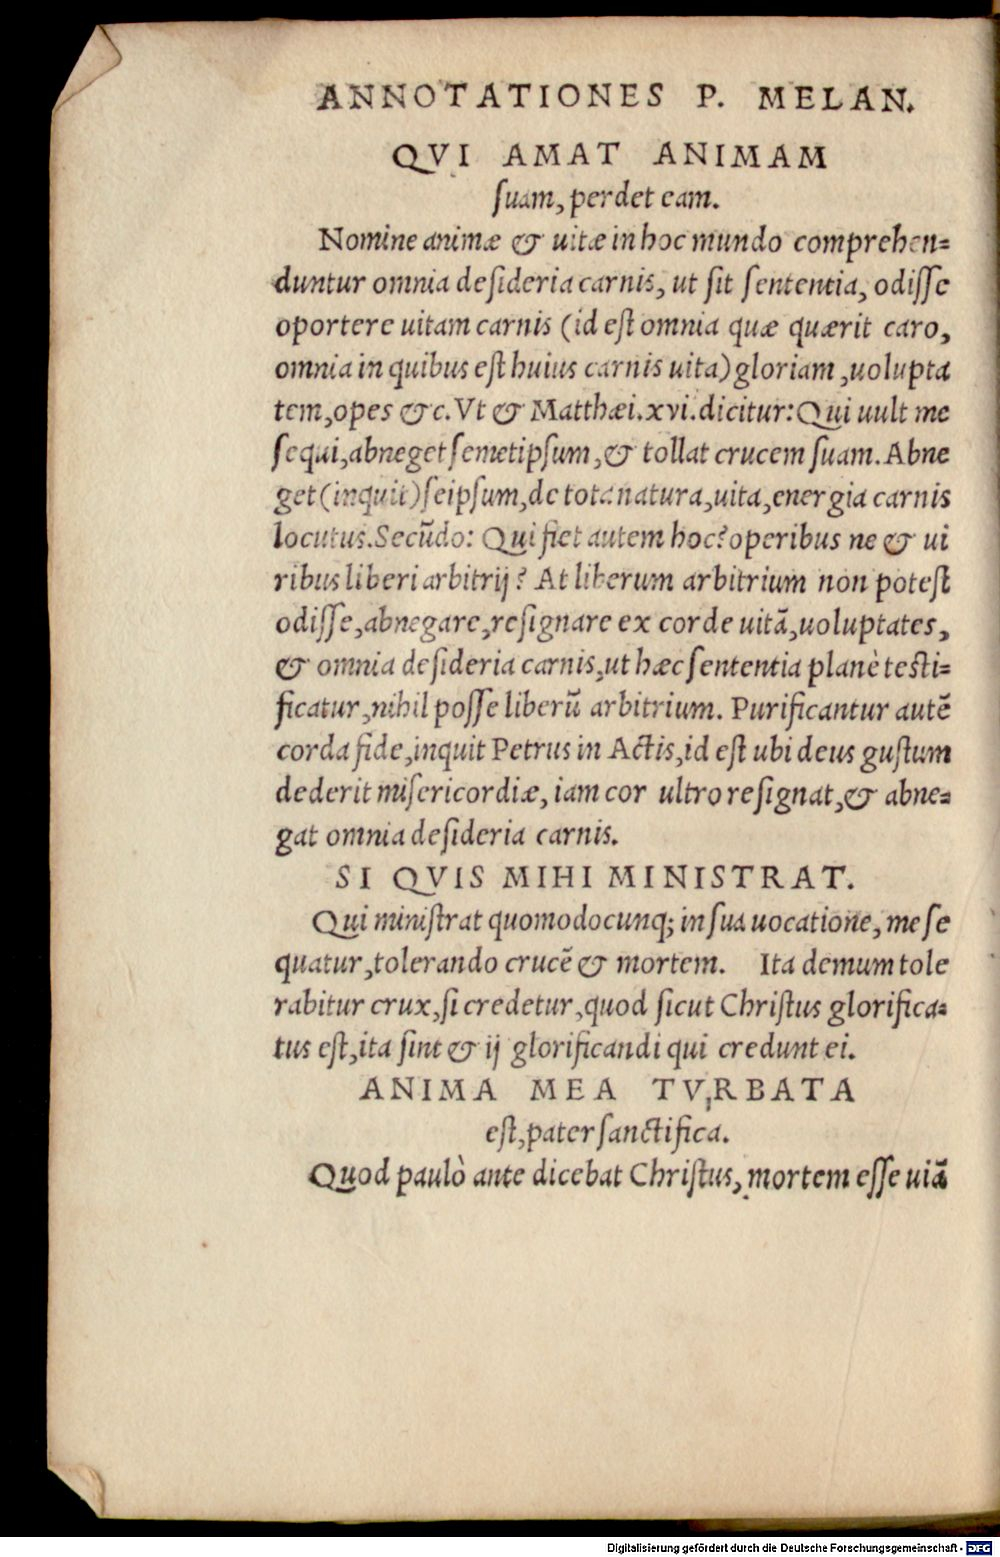 ANNOTATIONES P. MELAN.
QVI AMAT ANIMAM
ſuam, perdet eam.
Nomine animæ & uitæ in hoc mundo comprehen=
duntur omnia deſideria carnis, ut ſit ſententia, odiſſe
oportere uitam carnis (id eſt omnia quæ quærit caro,
omnia in quibus eſt huius carnis uita) gloriam, uolupta
tem, opes &c. Vt & Matthæi. xvi. dicitur: Qui uult me
ſequi, abneget ſemetipſum, & tollat crucem ſuam. Abne
get (inquit) ſeipſum, de tota natura, uita, energia carnis
locutus. Secũdo: Qui fiet autem hoc? operibus ne & ui
ribus liberi arbitrij? At liberum arbitrium non poteſt
odiſſe, abnegare, reſignare ex corde uitã, uoluptates,
& omnia deſideria carnis, ut hæc ſententia planè teſti=
ficatur, nihil poſſe liberũ arbitrium. Purificantur autẽ
corda fide, inquit Petrus in Actis, id eſt ubi deus guſtum
dederit miſericordiæ, iam cor ultro reſignat, & abne=
gat omnia deſideria carnis.
SI QVIS MIHI MINISTRAT.
Qui miniſtrat quomodocunq; in ſua uocatione, me ſe
quatur, tolerando crucẽ & mortem. Ita demum tole
rabitur crux, ſi credetur, quod ſicut Chriſtus glorifica=
tus eſt, ita ſint & ij glorificandi qui credunt ei.
ANIMA MEA TVRBATA
eſt, pater ſanctifica.
Quod paulò ante dicebat Chriſtus, mortem eſſe uiã
Digitalisierung gefördert durch die Deutsche Forschungsgemeinschaft - DFG